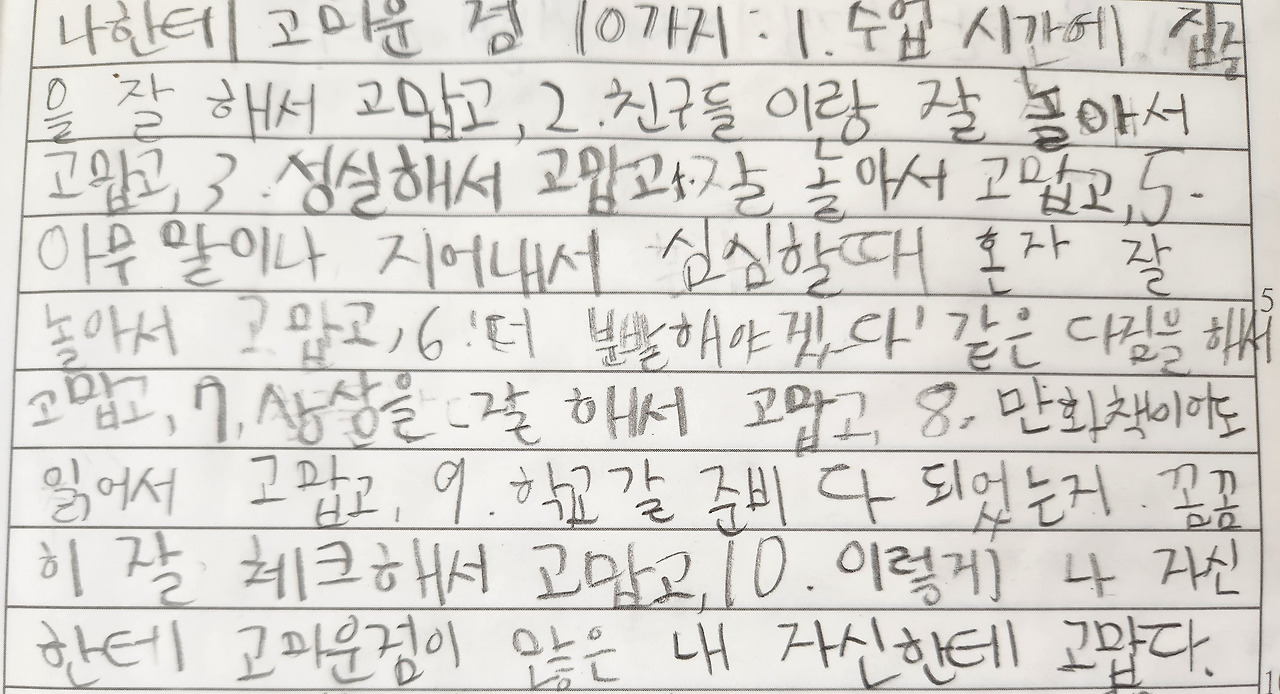 나한테 고마운 점 10가지: 1. 수업 시간에 집중
을 잘 해서 고맙고, 2. 친구들 이랑 잘 놀아서
고맙고, 3. 성실해서 고맙고 4. 잘 놀아서 고맙고, 5.
아무 말이나 지어내서 심심할때 혼자 잘
놀아서 고맙고, 6. '더 분발해야겠다' 같은 다짐을 해서
고맙고, 7, 상상을 잘 해서 고맙고, 8. 만화책이야도
읽어서 고맙고, 9. 학교갈 준비 다 되었는지 꼼꼼
히 잘 체크해서 고맙고, 10. 이렇게 나 자신
한테 고마운점이 많은 내 자신한테 고맙다.
5